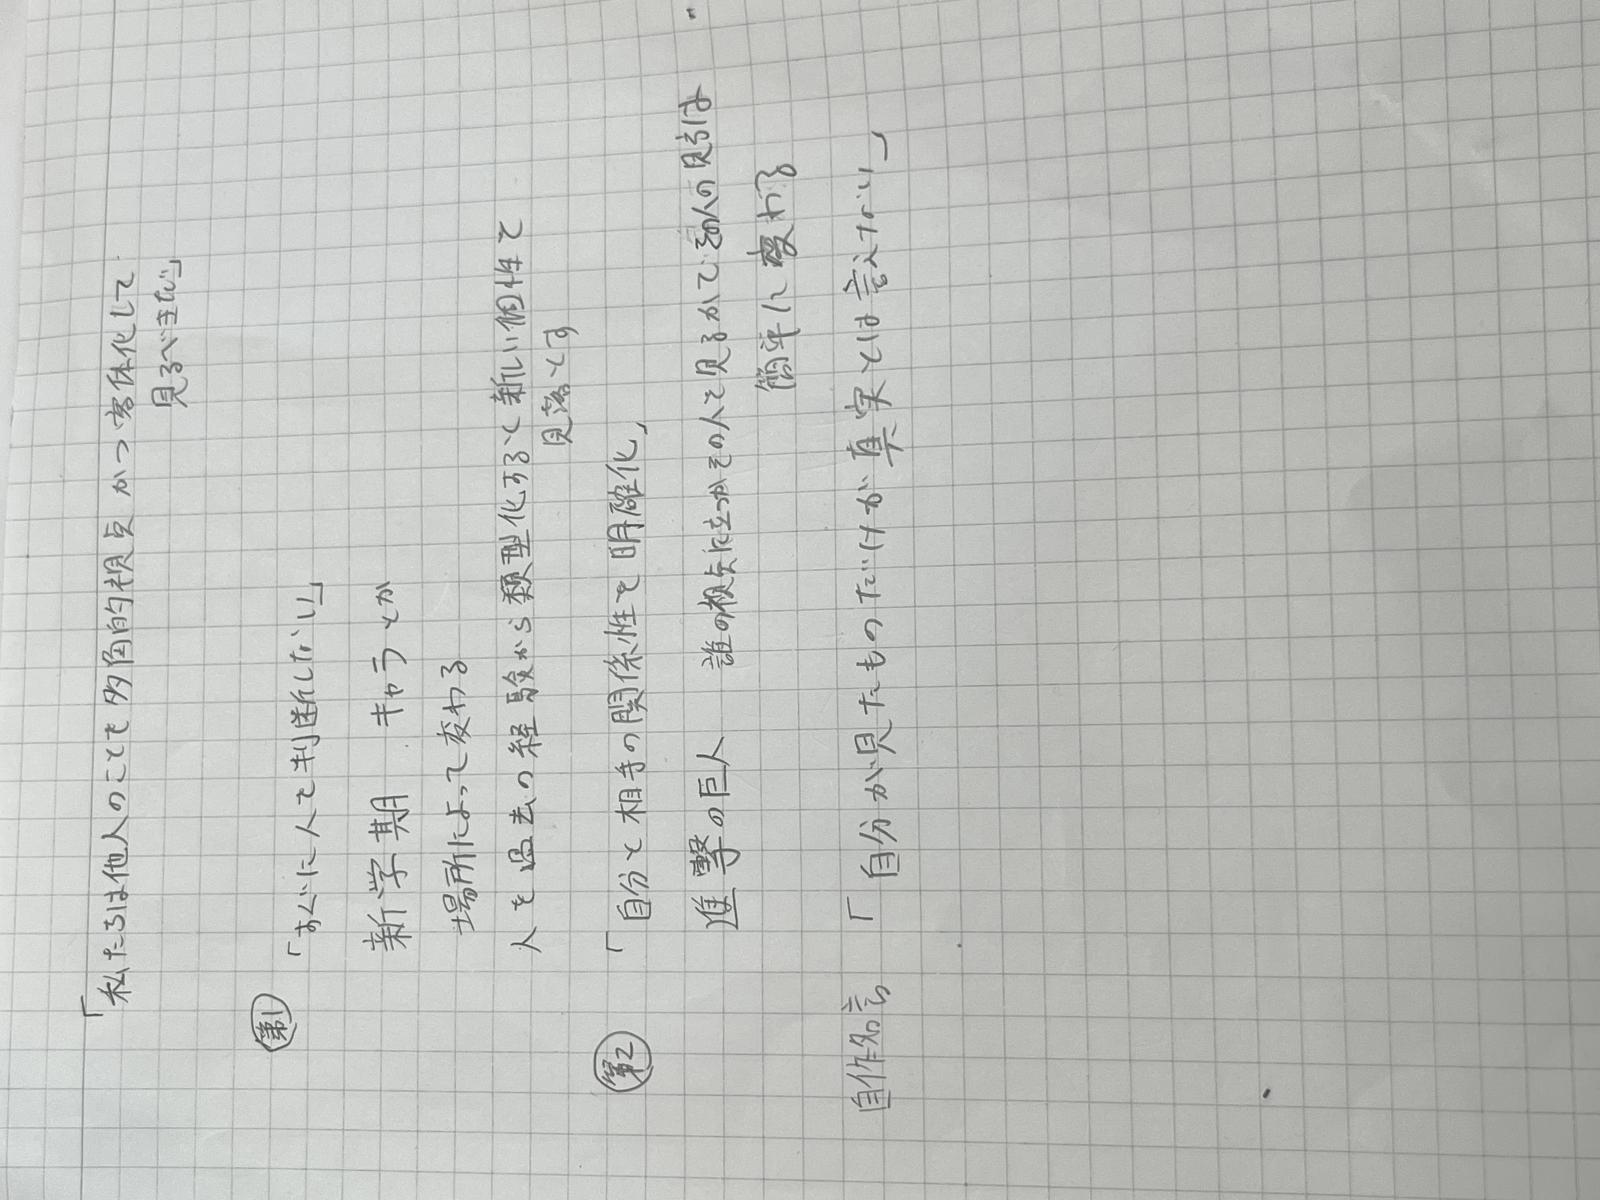 「私たちは他人のことを多角的視点かつ客体化して
見るべきだ」
第1
「すぐに人を判断しない」
新学期 キャラとか
場所によって変わる
人を過去の経験から類型化すると新しい個性を
見落とす
第2
「自分と相手の関係性を明確化」
進撃の巨人 誰の視点に立つかその人を見るかで その人の見方は
簡単に変わる
自作名言 「自分が見たものだけが真実とは言えない」